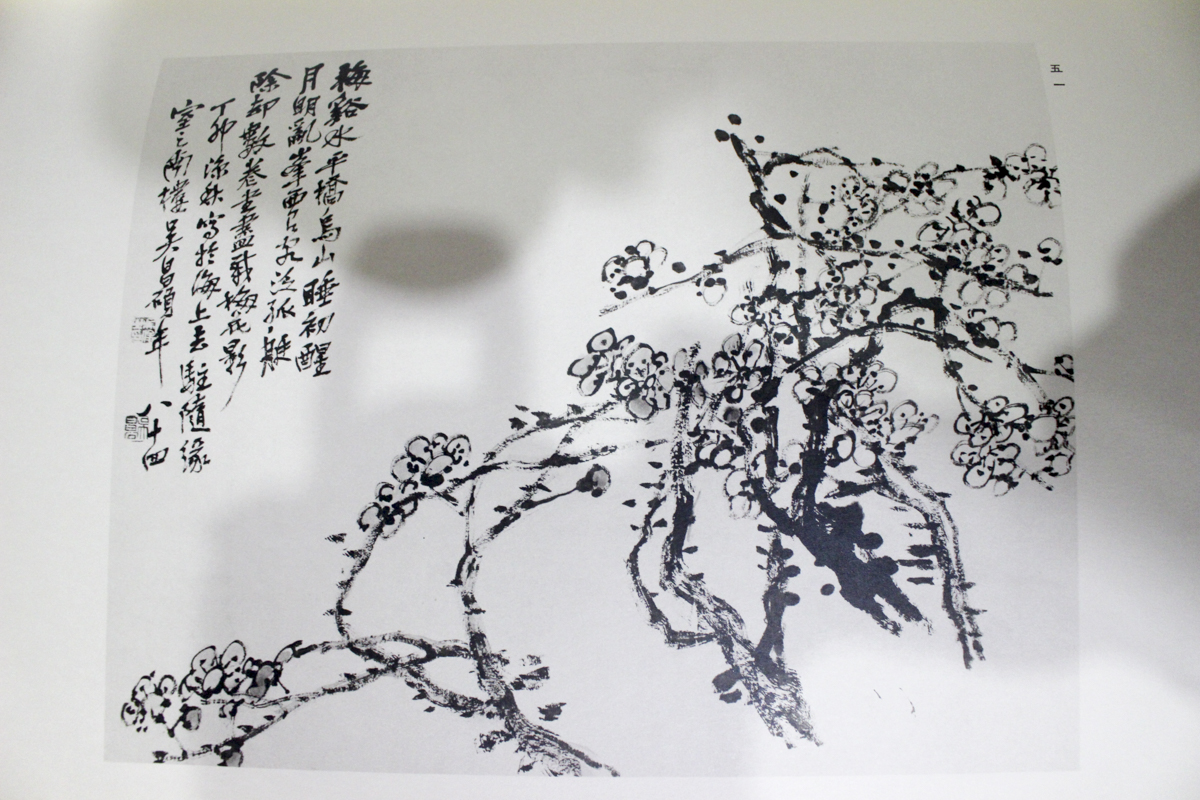 五一
梅谿水平橋烏山睡初醒
月明亂峯西有客泛孤艇
除却數卷書盡載梅花影
丁卯深秋寫於海上去駐隨緣
室之南樓吳昌碩年八十四